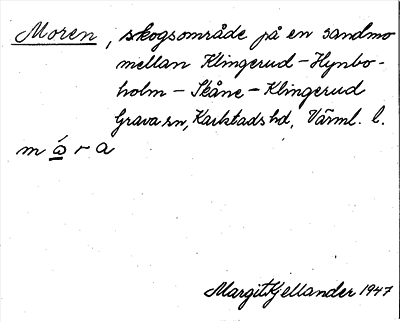 Moren, skogsområde på en sandmo
mellan Klingerud - Hynbo-
holm - Skåne - Klingerud
Grava sn, Karlstads hd, Värml. l.
m ó̲ r a
Margit Kjellander 1947